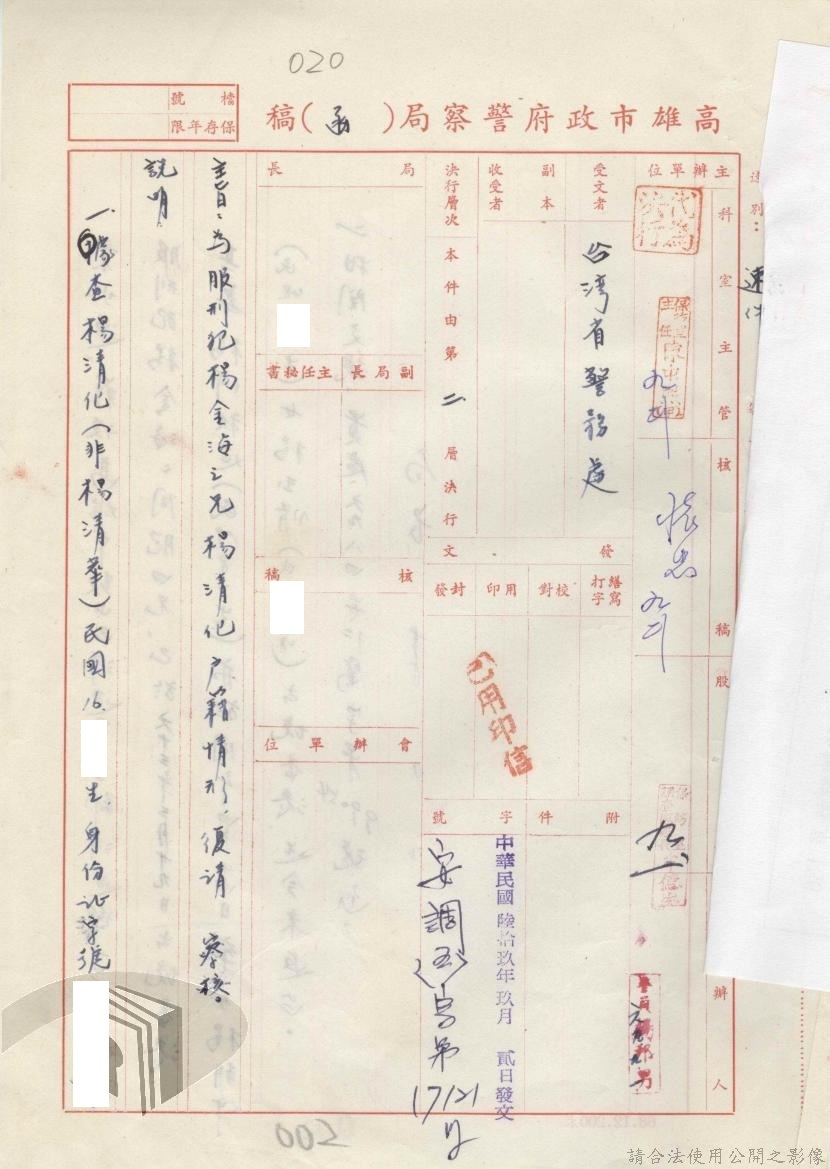 020
高雄市政府警察局（函）稿
檔號
保存年限
速別：
速件
主辦單位
代為決行
科室主管
核稿
股
辦人
受文者
台湾省警務處
副本
收受者
決行層次
本件由第二層決行
發文
繕寫
打字
校對
用印
封發
已用印信
附件
字號
中華民國陸拾玖年玖月貳日發文
安調（五）字第17121號
局長
副局長主任秘書
核稿
會辦單位
主旨：為服刑犯楊金海之兄楊清化户籍情形，復請察核。
說明：
一、據查楊清化（非楊清華）民國16.
生，身份证字號
002
68.12.200
請合法使用公開之影像